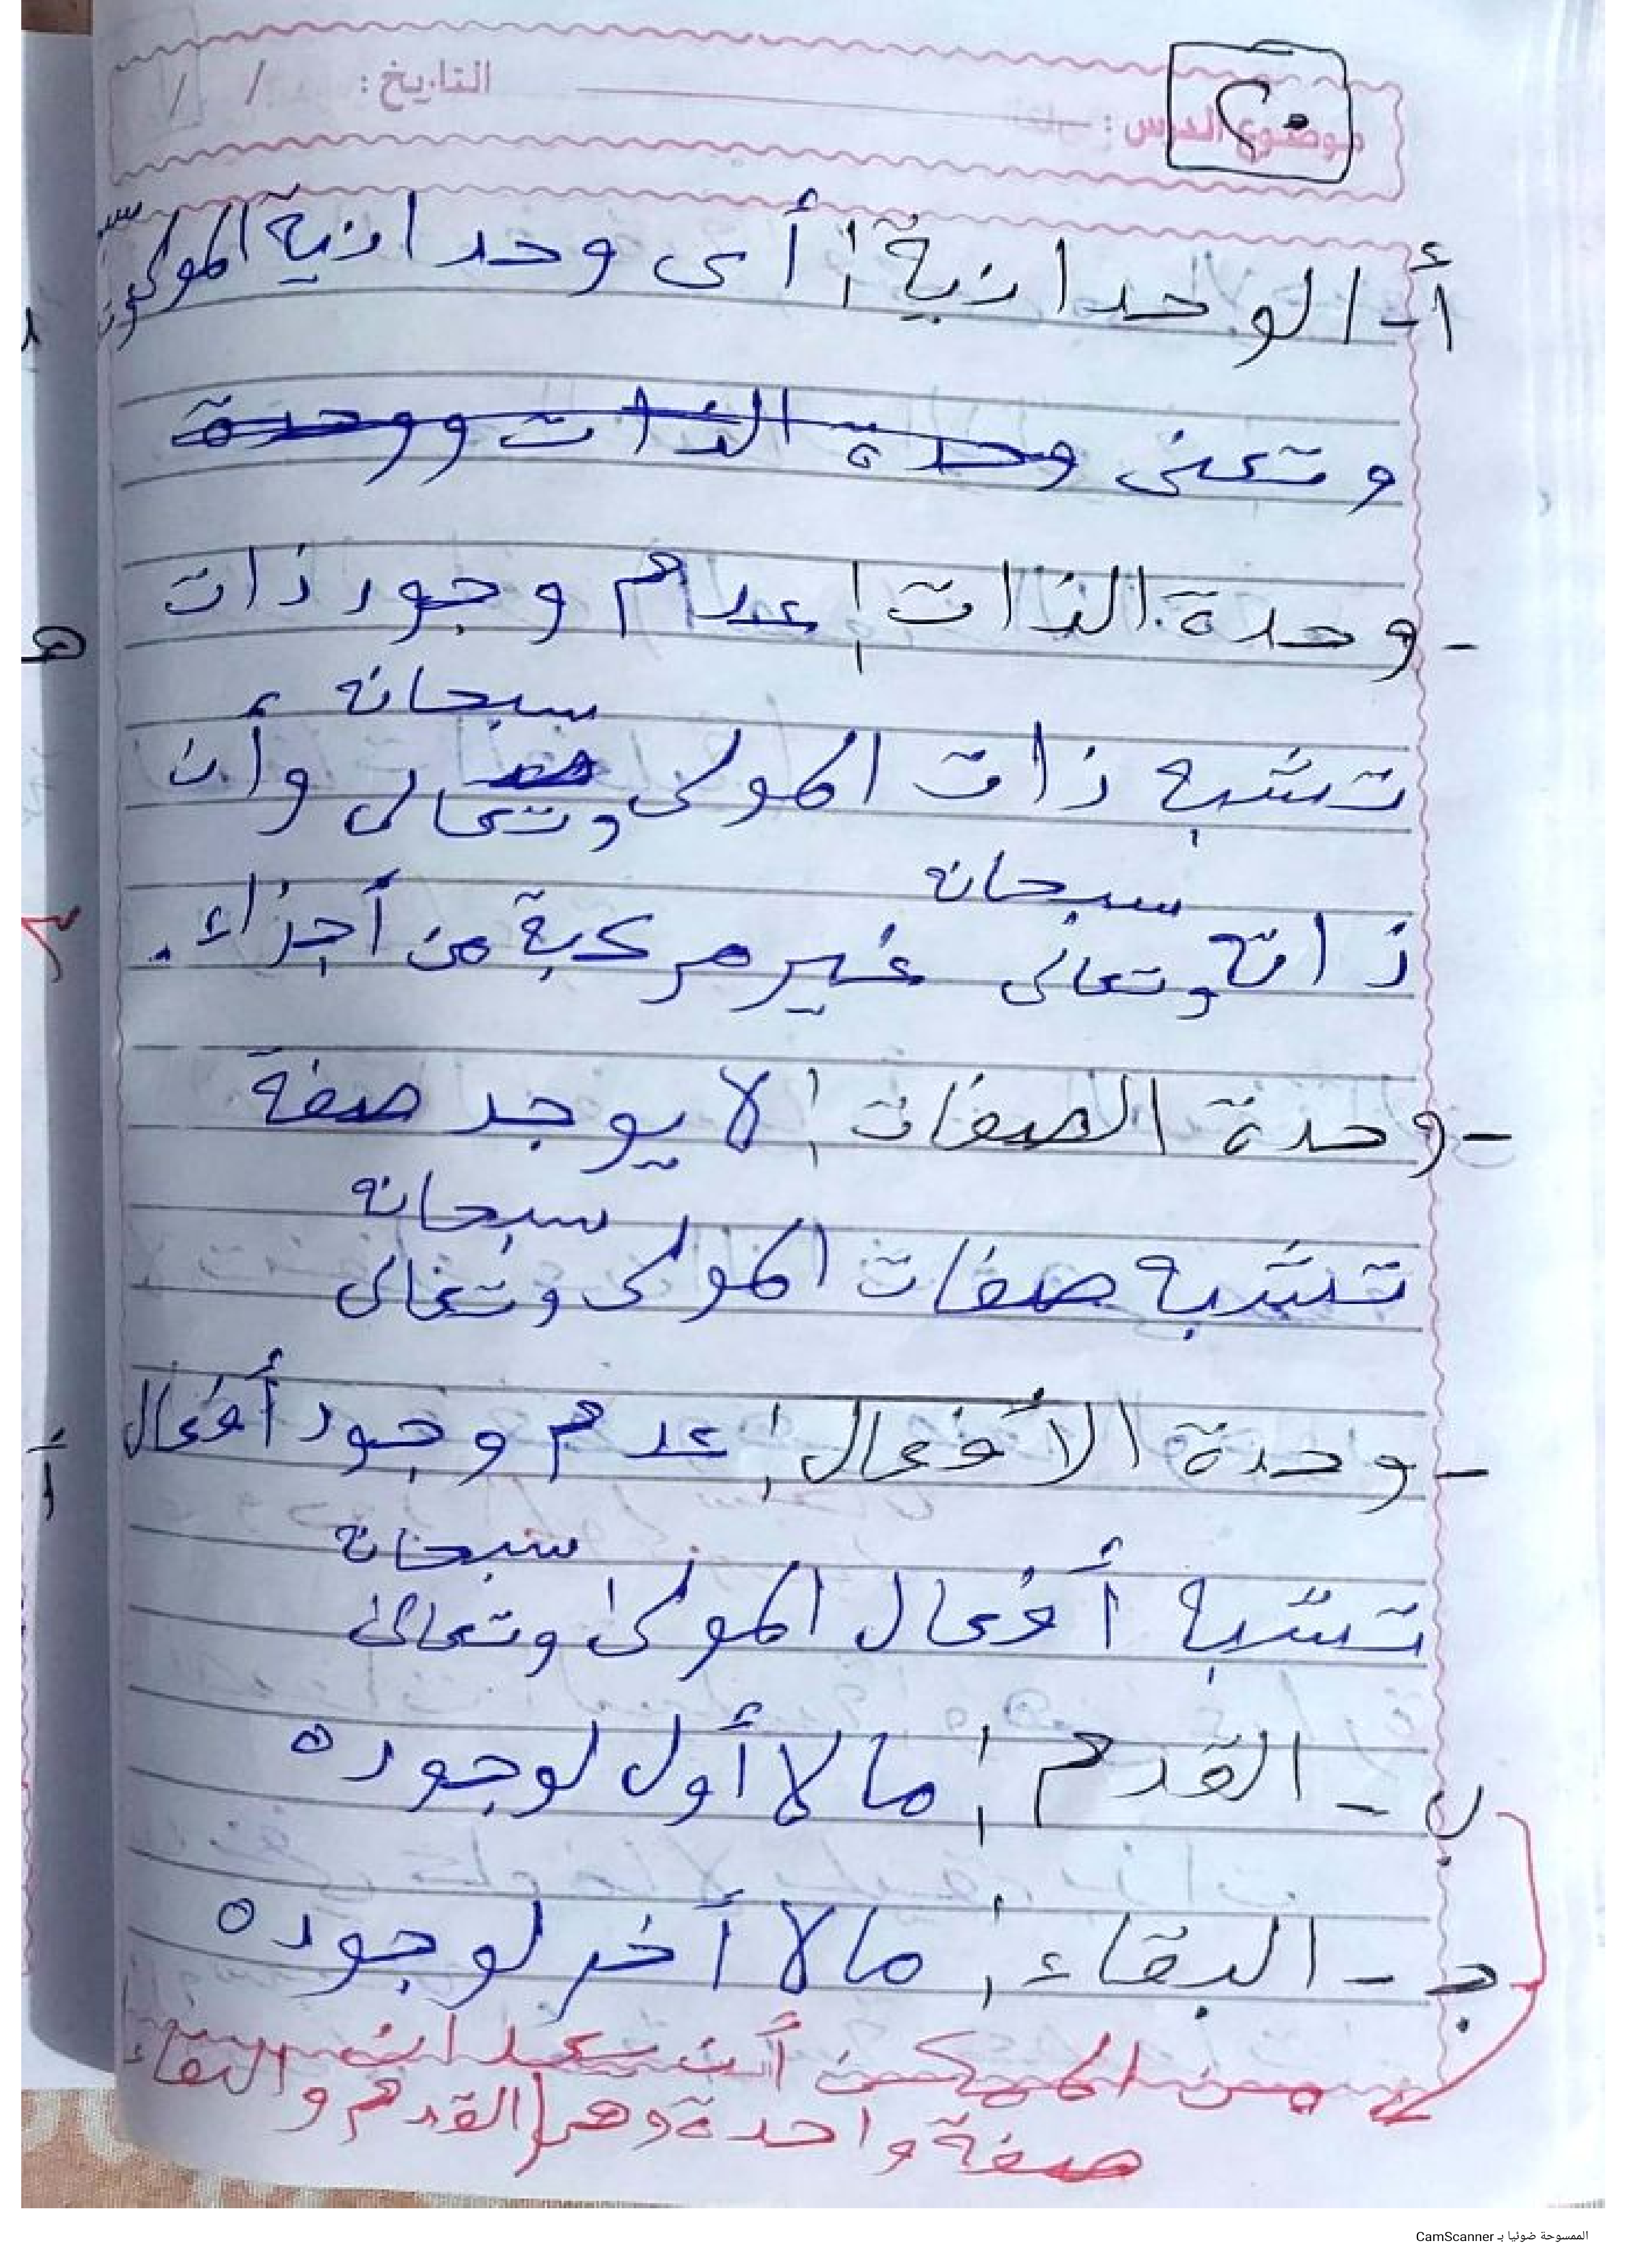 ٢٠
موضوع الدرس : التاريخ : / /
أ - الوحدانية : أى وحدانية المولى
وتعنى وحدة الذات ووحدة
- وحدة الذات : عدم وجود ذات
تشبه ذات المولى سبحانه وتعالى وأن
ذاته سبحانه وتعالى غير مركبة من أجزاء .
- وحدة الصفات : لا يوجد صفة
تشبه صفات المولى سبحانه وتعالى
- وحدة الأفعال : عدم وجود أفعال
تشبه أفعال المولى سبحانه وتعالى
ب - القدم : مالا أول لوجوده
ج - البقاء : مالا أخر لوجوده
من الممكن أن والبقاء
صفة واحدة وهى (القدم و
الممسوحة ضوئيا بـ CamScanner